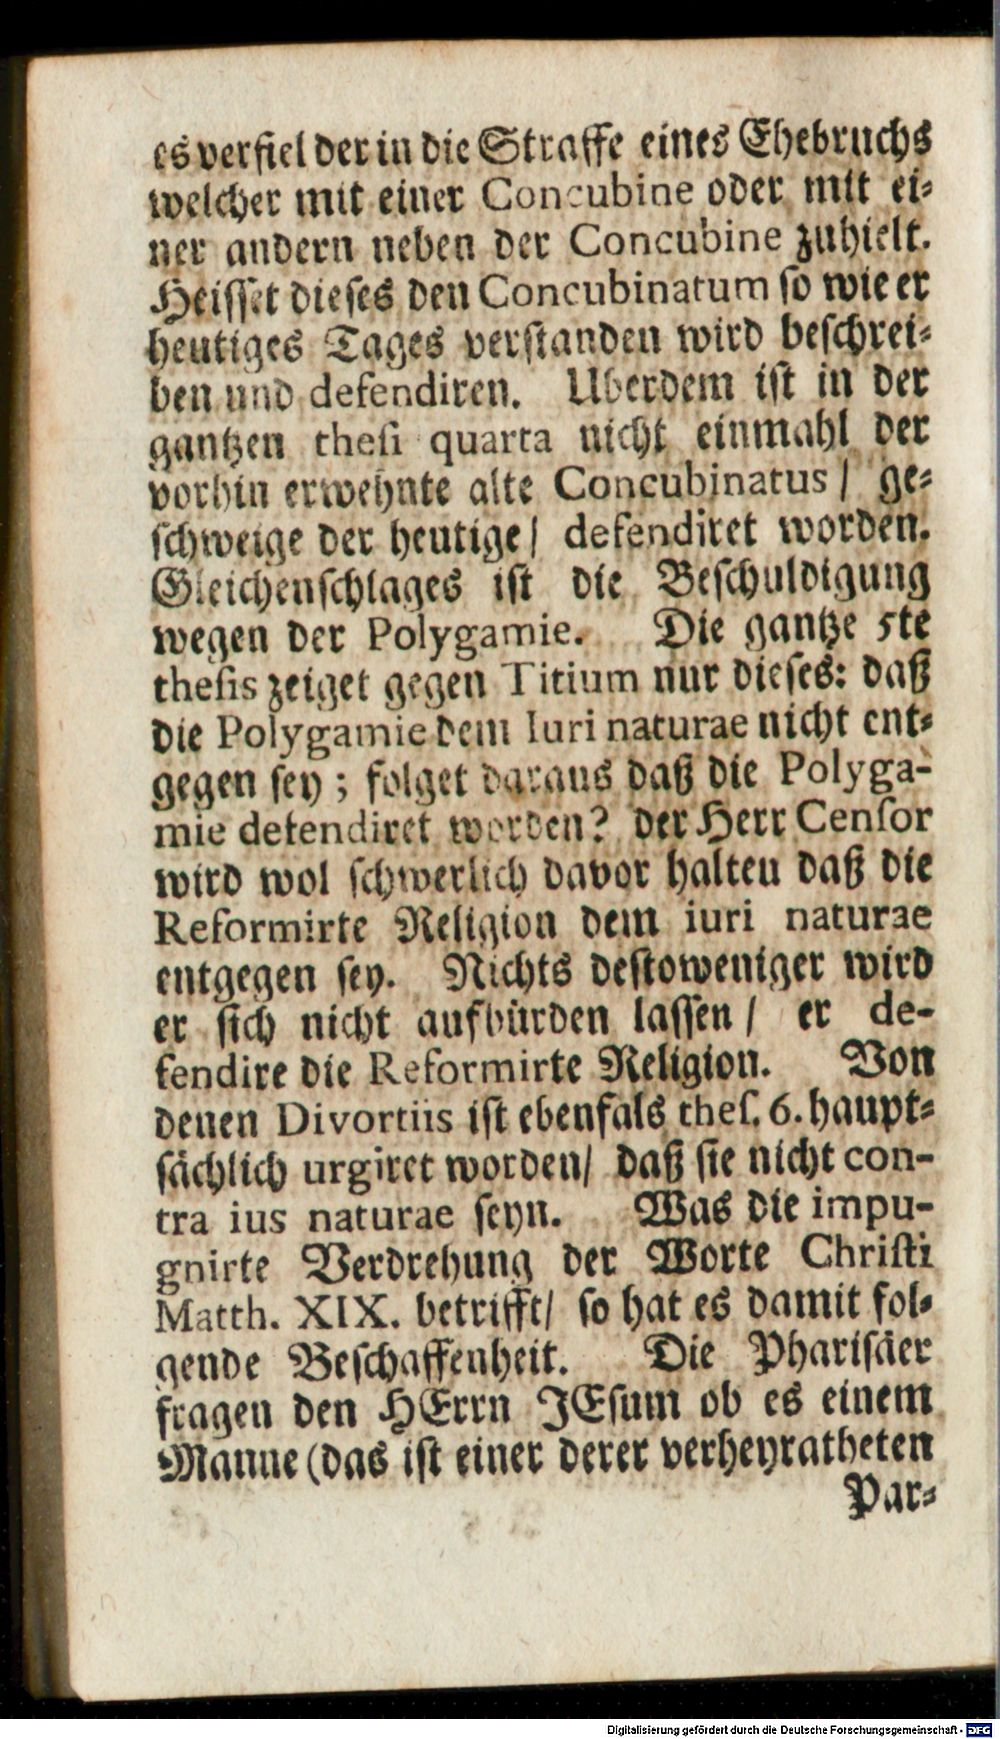 es verfiel der in die Straffe eines Ehebruchs
welcher mit einer Concubine oder mit ei⸗
ner andern neben der Concubine zuhielt.
Heisset dieses den Concubinatum so wie er
heutiges Tages verſtanden wird beſchrei⸗
ben und defendiren. Uberdem iſt in der
gantzen theſi quarta nicht einmahl der
vorhin erwehnte alte Concubinatus / ge⸗
ſchweige der heutige / defendiret worden.
Gleichenſchlages iſt die Beſchuldigung
wegen der Polygamie. Die gantze 5te
theſis zeiget gegen Titium nur dieſes: daß
die Polygamie dem Iuri naturae nicht ent⸗
gegen ſey ; folget daraus daß die Polyga-
mie defendiret worden? der Herr Cenſor
wird wol ſchwerlich davor halten daß die
Reformirte Religion dem iuri naturae
entgegen ſey. Nichts deſtoweniger wird
er ſich nicht aufbürden laſſen / er de-
fendire die Reformirte Religion. Von
denen Divortiis iſt ebenfals theſ. 6. haupt⸗
ſächlich urgiret worden / daß ſie nicht con-
tra ius naturae ſeyn. Was die impu-
gnirte Verdrehung der Worte Chriſti
Matth. XIX. betrifft / ſo hat es damit fol⸗
gende Beſchaffenheit. Die Phariſäer
fragen den HErrn JEſum ob es einem
Manne (das iſt einer derer verheyratheten
Par⸗
Digitalisierung gefördert durch die Deutsche Forschungsgemeinschaft - DFG